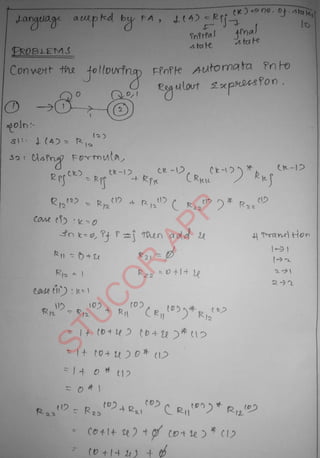 Language accepted by FA, L(A) = Rij (k) → no. of. states
Initial state final state
10
PROBLEMS
Convert the following Finite Automata into
Regular Expression.
① → 1 0 1 2 0,1
Soln:-
S1: L(A) = R12 (2)
S2: Using Formula,
Rij (k) = Rij (k-1) + Rik (k-1) (Rkk (k-1))* Rkj (k-1)
R12 (2) = R12 (1) + R12 (1) (R22 (1))* R22 (1)
case (i): k=0
In k=0, if i=j then add ε
4 Transition
R11 = 0+ε R21 = ∅
1→1
1→2
R12 = 1 R22 = 0+1+ε
2→1
2→2
case (ii): k=1
R12 (1) = R12 (0) + R11 (0) (R11 (0))* R12 (0)
= 1+ (0+ε) (0+ε)* (1)
= 1+ (0+ε) 0* (1)
= 1+ 0* (1)
= 0* 1
R22 (1) = R22 (0) + R21 (0) (R11 (0))* R12 (0)
= (0+1+ε) + ∅ (0+ε)* (1)
= (0+1+ε) + ∅
STUCOR APP